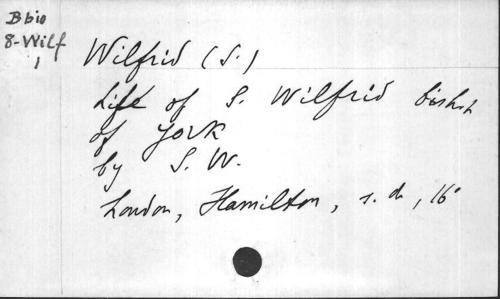 B bio
8-Wilf
1
Wilfrid (S.)
Life of S. Wilfrid bishop
of York
by S. W.
London, Hamilton, s. d., 16°